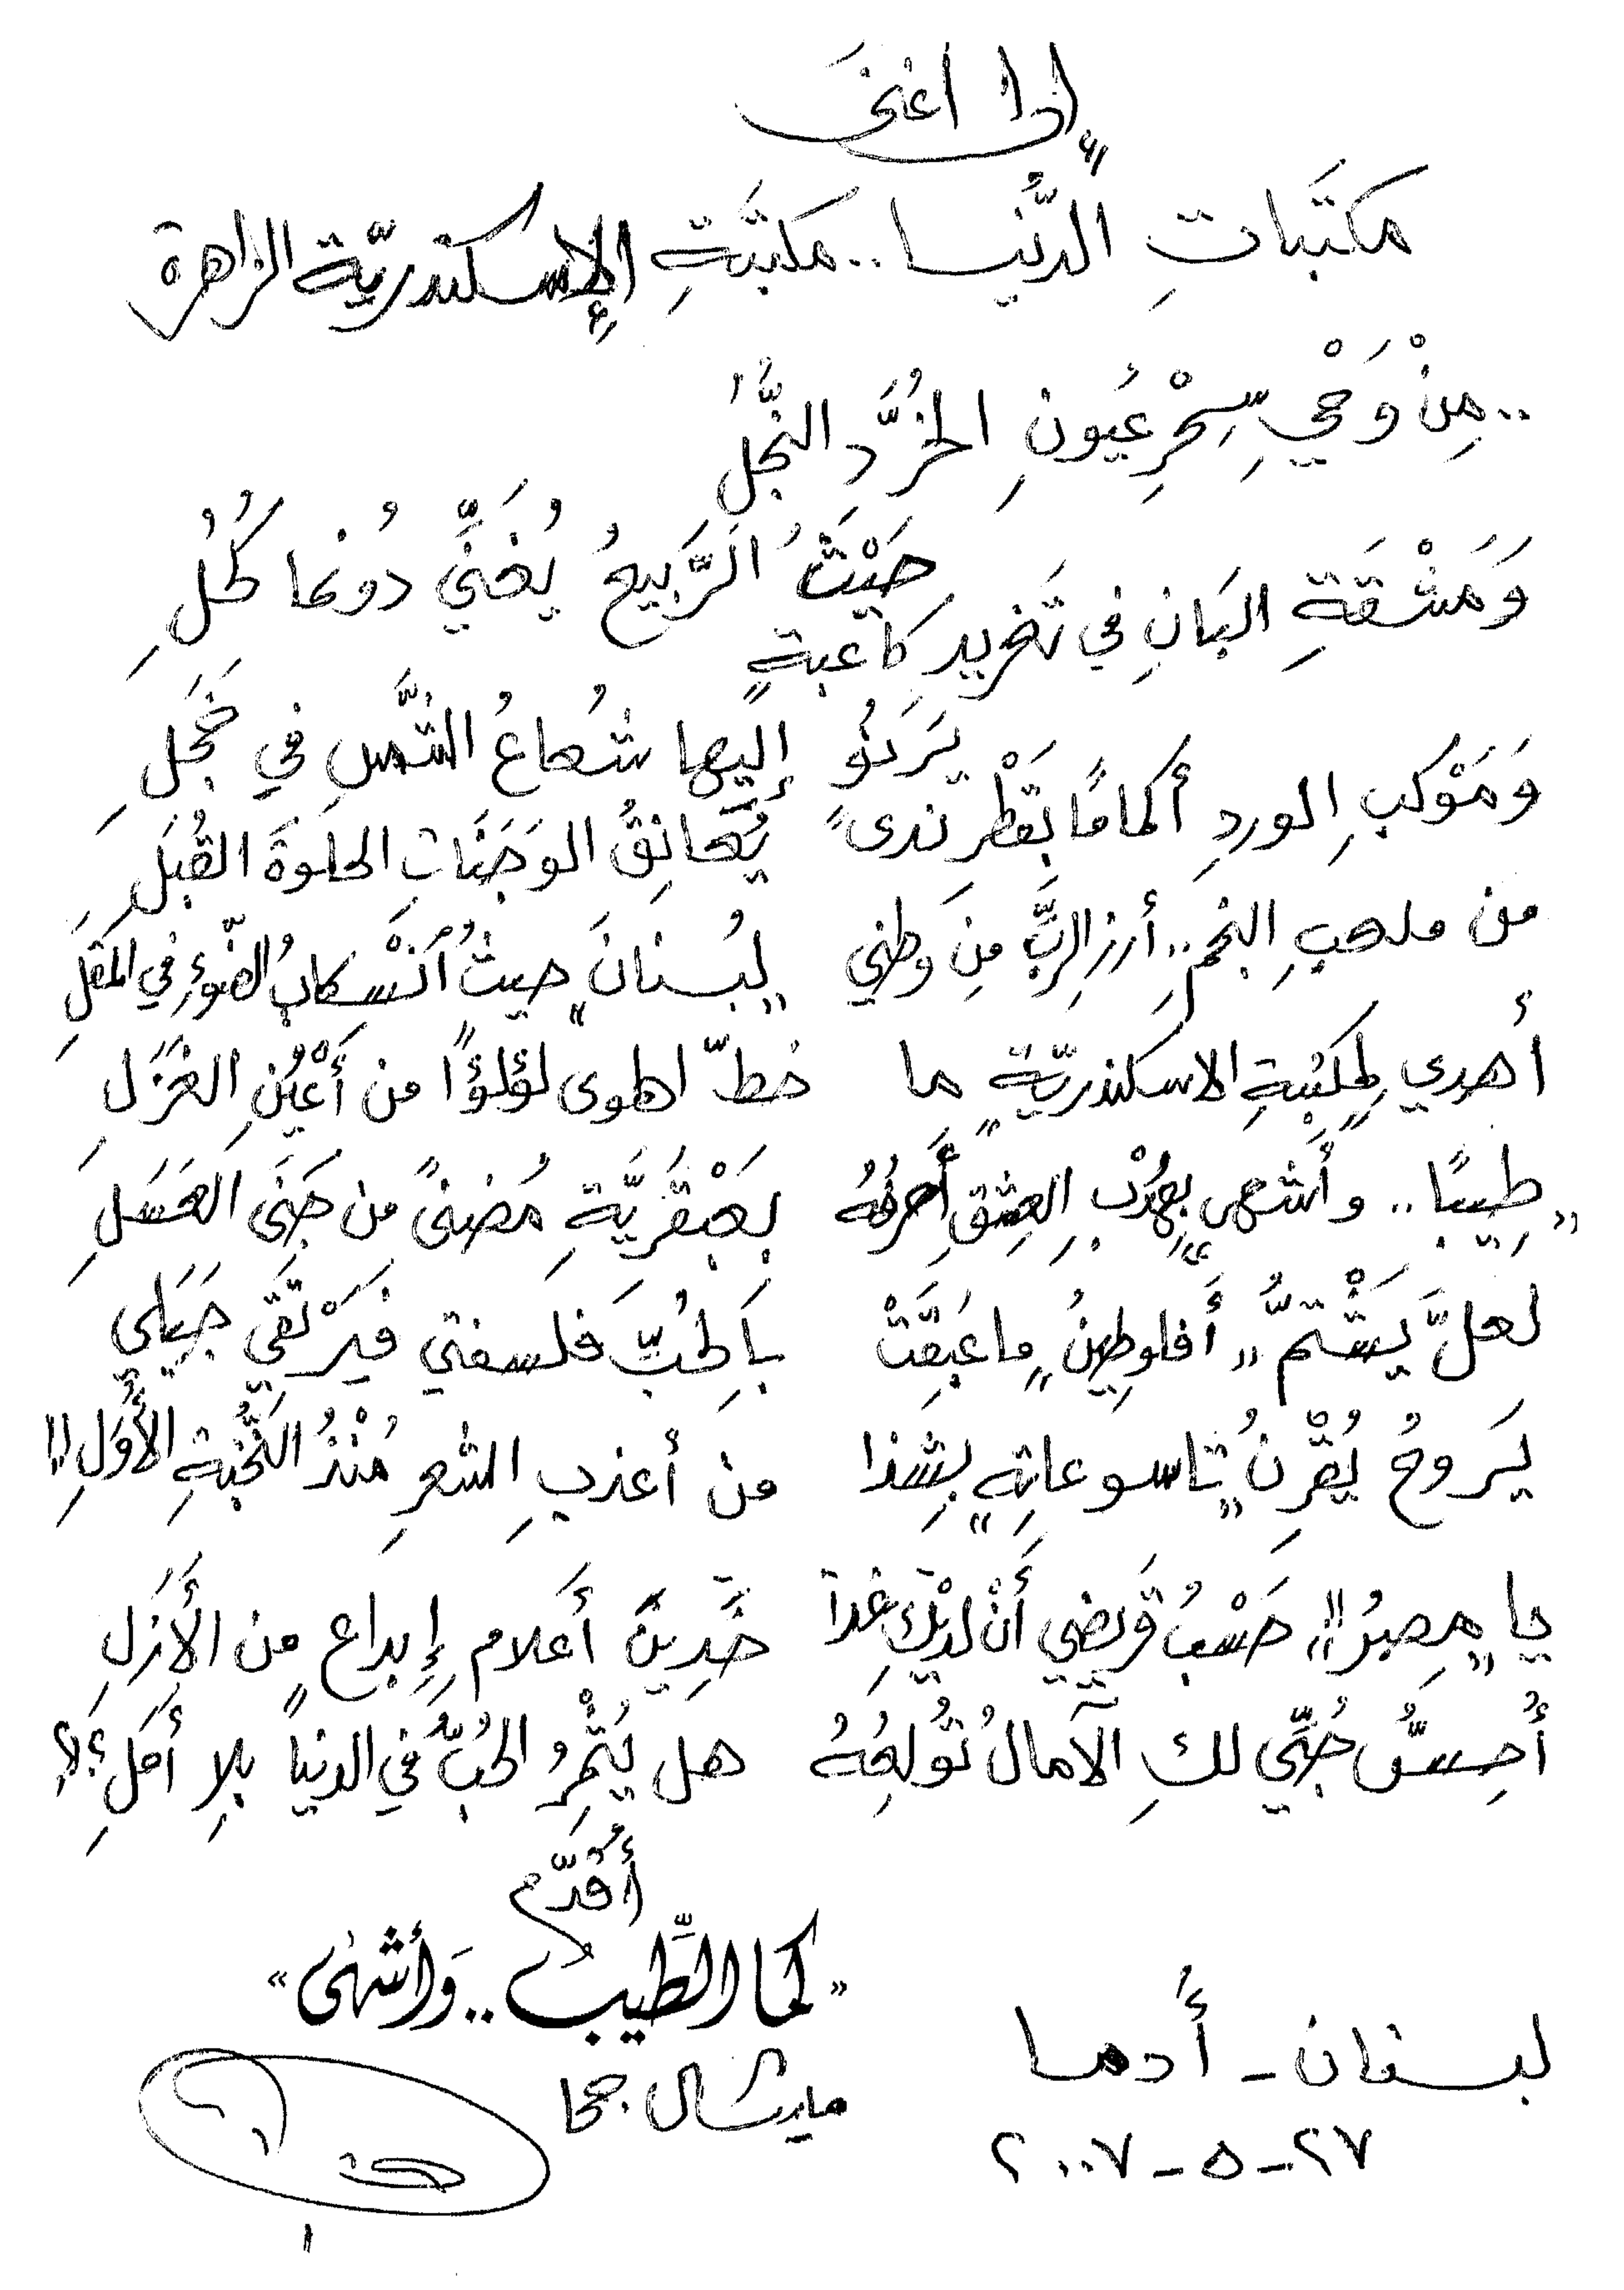 إلى أغنى
مكتَباتِ الدُّنيا.. مكتَبَةِ الإسكندريّة الزاهرة
..مِنْ وَحْيِ سِّحْرِ عُيونِ الخُرَّدِ النُّجُلِ حَيْثُ الرَّبيعُ يُغَنِّي دُونما كَلَلِ
وَمَشْقَةِ البَانِ في تَغريدِ كاعبةٍ يَرنُو إليها شُعاعُ الشَّمسِ في خَجَلِ
وَمَوْكبِ الوردِ أكمامًا بقَطْرِ ندىً يُعانِقُ الوَجَنَاتِ الحلوةَ القُبَلِ
من ملعبِ النجمِ.. أرزِ الربِّ مِنَ وطني "لبُنانَ" حيثُ ٱنْسكابُ الضّوءِ في المُقَلِ
أُهدي "لمِكتبةِ الاسكندريّةِ" ما خطّ الهوى لؤلؤًا من أَعْيُنِ الغَزَلِ
"طِيبًا.. وأشهى" بِهُدْبِ العِشقِ أَحرفُهُ بعَبْقَريَّةِ مُضنىً من جَنَى العَسَلِ
لعلَّ يَشْتَمُّ "أَفلوطينُ" ما عَبَقَتْ بِالحُبِّ فلسفتي فيَرْتَقي جَبَلي
يَروحُ يُقْرِنُ "تاسوعاتِهِ" بشَذا من أعذبِ الشعرِ مُنْذُ النُّخبةِ الأُوَلِ!!
يا "مِصرُ"!! حَسْبُ قَريضي أَنْ لديْكِ غدا خَدينَ أَعلامِ إبداعٍ من الأَزَلِ
أُحِسُّ حُبِّي لكِ الآمالُ تُولعُهُ هل يُثْمِرُ الحُبُّ في الدنيا بلا أَمَلِ؟!
أُقدّم
"كما الطِّيب.. وَأشهى"
ميشال جحا
لبنان - أدما
٢٧-٥-٢٠٠٧